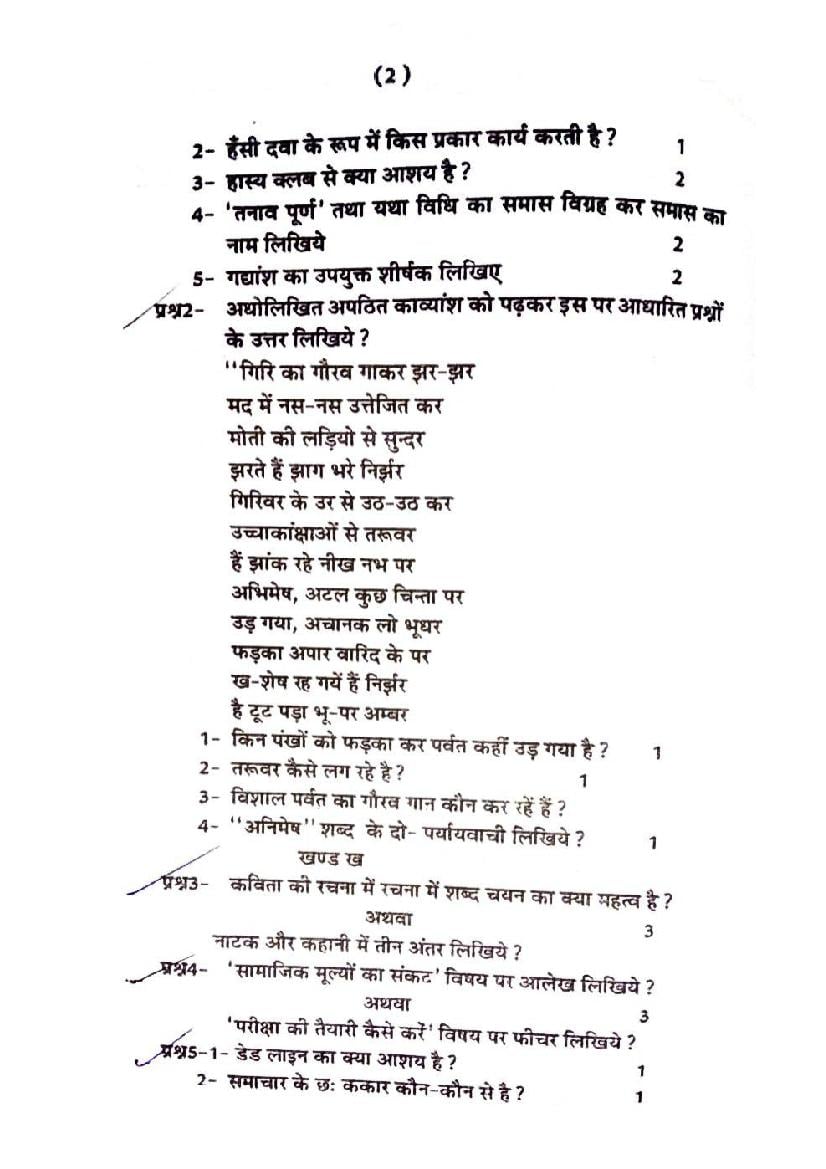 (2)
2- हँसी दवा के रूप में किस प्रकार कार्य करती है ? 1
3- हास्य क्लब से क्या आशय है ? 2
4- 'तनाव पूर्ण' तथा यथा विधि का समास विग्रह कर समास का
नाम लिखिये 2
5- गद्यांश का उपयुक्त शीर्षक लिखिए 2
प्रश्न2- अधोलिखित अपठित काव्यांश को पढ़कर इस पर आधारित प्रश्नों
के उत्तर लिखिये ?
"गिरि का गौरव गाकर झर-झर
मद में नस-नस उत्तेजित कर
मोती की लड़ियो से सुन्दर
झरते हैं झाग भरे निर्झर
गिरिवर के उर से उठ-उठ कर
उच्चाकांक्षाओं से तरूवर
हैं झांक रहे नीख नभ पर
अभिमेष, अटल कुछ चिन्ता पर
उड़ गया, अचानक लो भूधर
फड़का अपार वारिद के पर
ख-शेष रह गयें हैं निर्झर
है टूट पड़ा भू-पर अम्बर
1- किन पंखों को फड़का कर पर्वत कहीं उड़ गया है ? 1
2- तरूवर कैसे लग रहे है ? 1
3- विशाल पर्वत का गौरव गान कौन कर रहें हैं ?
4- "अनिमेष" शब्द के दो- पर्यायवाची लिखिये ? 1
खण्ड ख
प्रश्न3- कविता की रचना में रचना में शब्द चयन का क्या महत्व है ?
अथवा 3
नाटक और कहानी में तीन अंतर लिखिये ?
प्रश्न4- 'सामाजिक मूल्यों का संकट' विषय पर आलेख लिखिये ?
अथवा 3
'परीक्षा की तैयारी कैसे करें' विषय पर फीचर लिखिये ?
प्रश्न5-1- डेड लाइन का क्या आशय है ? 1
2- समाचार के छः ककार कौन-कौन से है ? 1